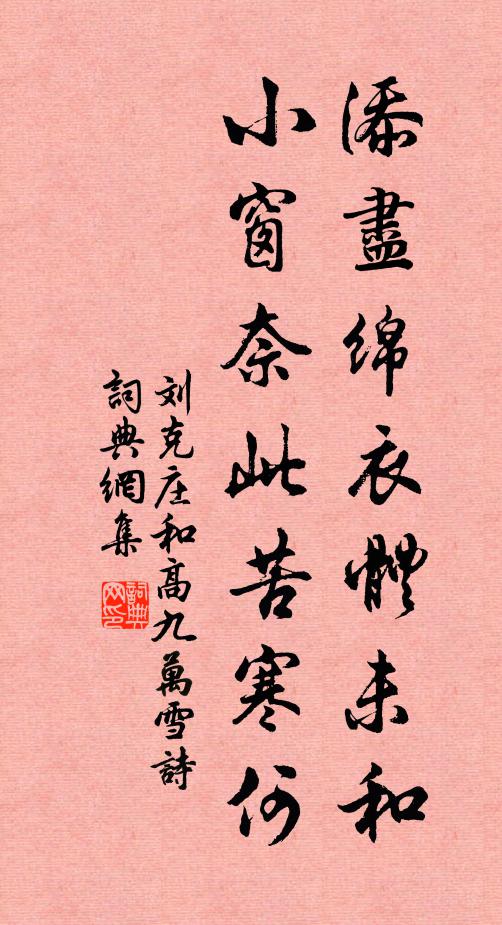 添盡綿衣體未和
小窗奈此苦寒何
刘克庄和高九萬雪詩
詞典網集
詞典网印